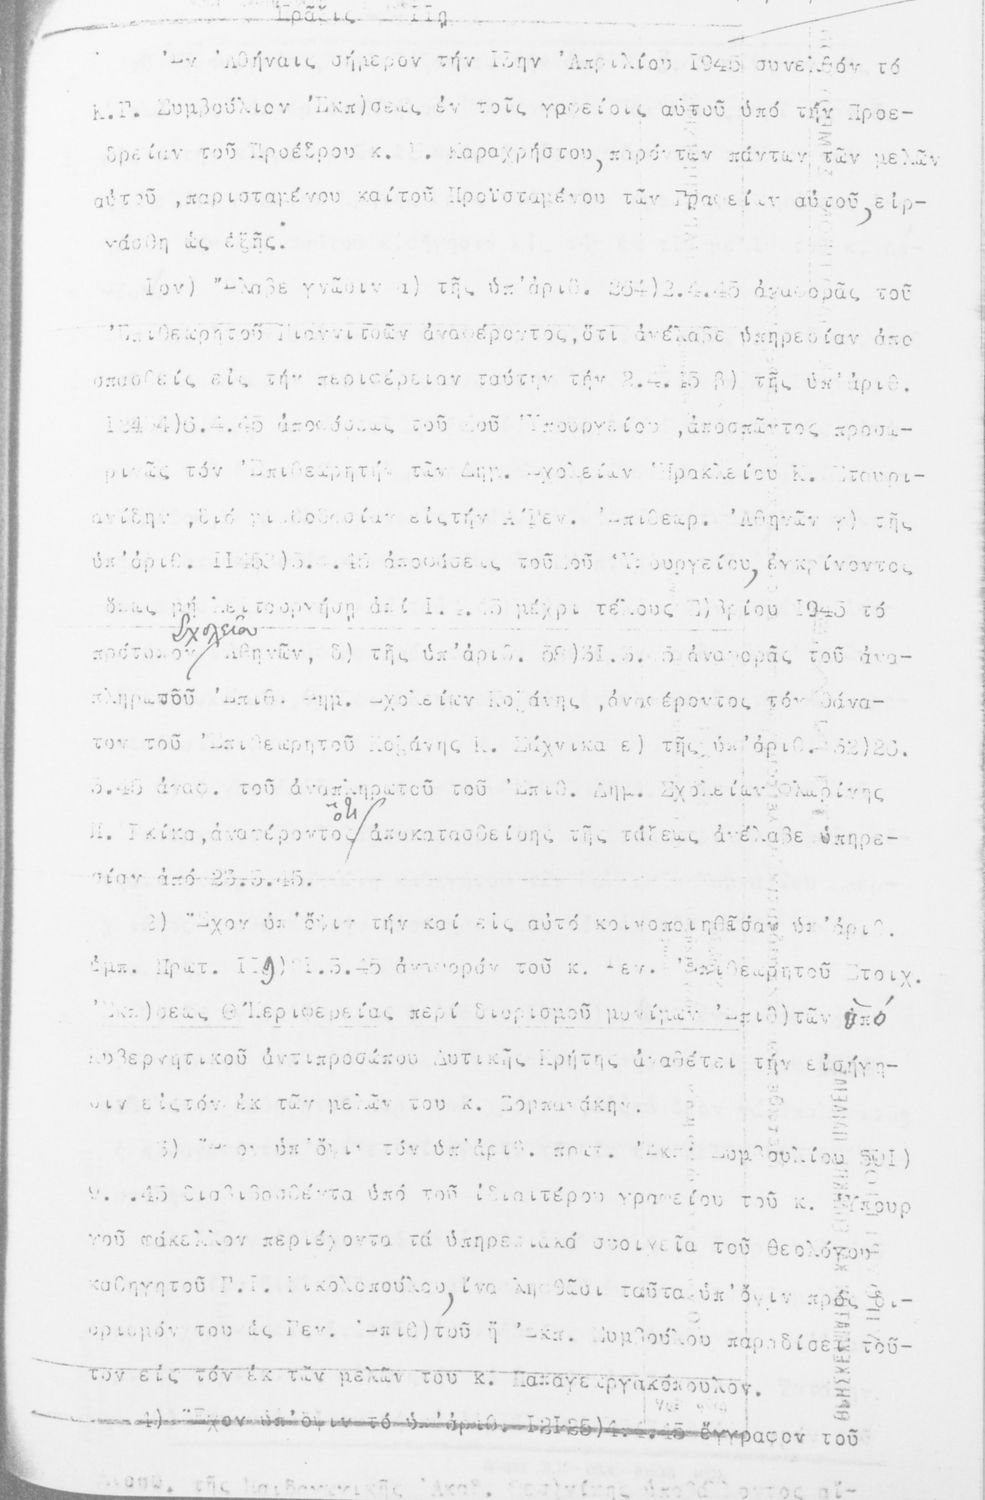 Πρᾶξις 11η
Ἐν Ἀθήναις σήμερον τήν Ἀπριλίου 1945 συνελθόν τό
Κ.Γ. Συμβούλιον Ἐκπ)σεως ἐν τοῖς γραφείοις αὐτοῦ ὑπό τήν Προε-
δρείαν τοῦ Προέδρου κ. Καραχρήστου, παρόντων πάντων τῶν μελῶν
αὐτοῦ ,παρισταμένου καίτοῦ Προϊσταμένου τῶν Γραφείων αὐτοῦ, εἰρ-
γάσθη ὡς ἑξῆς:
Ιον) Ἔλαβε γνῶσιν α) τῆς ὑπ'ἀριθ. 264)2.4.45 ἀναφορᾶς τοῦ
Ἐπιθεωρητοῦ Γιαννιτσῶν ἀναφέροντος,ὅτι ἀνέλαβε ὑπηρεσίαν ἀπο
σπασθείς εἰς τήν περιφέρειαν ταύτην τήν 2.4.45 β) τῆς ὑπ'ἀριθ.
6.4.45 ἀποφάσεως τοῦ Ὑπουργείου ,ἀποσπῶντος προσω-
ρινῶς τόν Ἐπιθεωρητήν τῶν Δημ. Σχολείων Ἡρακλείου Κ. Σταυρι-
ανίδην ,διά μισθοδοσίαν εἰςτήν Α'Γεν. Ἐπιθεωρ. Ἀθηνῶν γ) τῆς
ὑπ'ἀριθ. ἀποφάσεις τοῦ Ὑπουργείου, ἐγκρίνοντος
ὅπως μή λειτουργήση ἀπό μέχρι τέλους 1945 τό
Σχολεῖον
πρότυπον Ἀθηνῶν, δ) τῆς ὑπ'ἀριθ. ἀναφορᾶς τοῦ ἀνα-
πληρωτοῦ Ἐπιθ. Δημ. Σχολείων Κοζάνης ,ἀναφέροντος τόν θάνα-
τον τοῦ Ἐπιθεωρητοῦ Κοζάνης Κ. ε) τῆς ὑπ'ἀριθ. 23.
3.45 ἀναφ. τοῦ ἀναπληρωτοῦ τοῦ Ἐπιθ. Δημ. Σχολείων Φλωρίνης
ὅτι
Π. Γκίκα,ἀναφέροντος ἀποκατασθείσης τῆς τάξεως ἀνέλαβε ὑπηρε-
σίαν ἀπό 23.3.45.
2) Ἔχον ὑπ'ὄψιν τήν καί εἰς αὐτό κοινοποιηθεῖσαν ὑπ'ἀριθ.
ἐμπ. Πρωτ. 119) ἀναφοράν τοῦ κ. Γεν. Ἐπιθεωρητοῦ Στοιχ.
Ἐκπ)σεως Θ'Περιφερείας περί διορισμοῦ μονίμων Ἐπιθ)τῶν ὑπό
Κυβερνητικοῦ ἀντιπροσώπου Δυτικῆς Κρήτης ἀναθέτει τήν εἰσήγη-
σιν εἰςτόν ἐκ τῶν μελῶν του κ.
3) Ἔχον ὑπ'ὄψιν τόν ὑπ'ἀριθ. πρωτ. Ἐκπ. Συμβουλίου 501)
διαβιβασθέντα ὑπό τοῦ ἰδιαιτέρου γραφείου τοῦ κ. Ὑπουρ
γοῦ φάκελλον περιέχοντα τά ὑπηρεσιακά στοιχεῖα τοῦ θεολόγου
καθηγητοῦ Γ.Ι. Νικολοπούλου, ἵνα ληφθῶσι ταῦτα ὑπ'ὄψιν πρός δι-
ορισμόν του ὡς Γεν. Ἐπιθ)τοῦ ἤ Ἐκπ. Συμβούλου παραδίσει τοῦ-
τον εἰς τόν ἐκ τῶν μελῶν του κ. Παπαγεωργακόπουλον.
4) Ἔχον ὑπ'ὄψιν τό ὑπ'ἀριθ. 12125)4.4.45 ἔγγραφον τοῦ
Διευθ. τῆς Παιδαγωγικῆς Ἀκαδ.